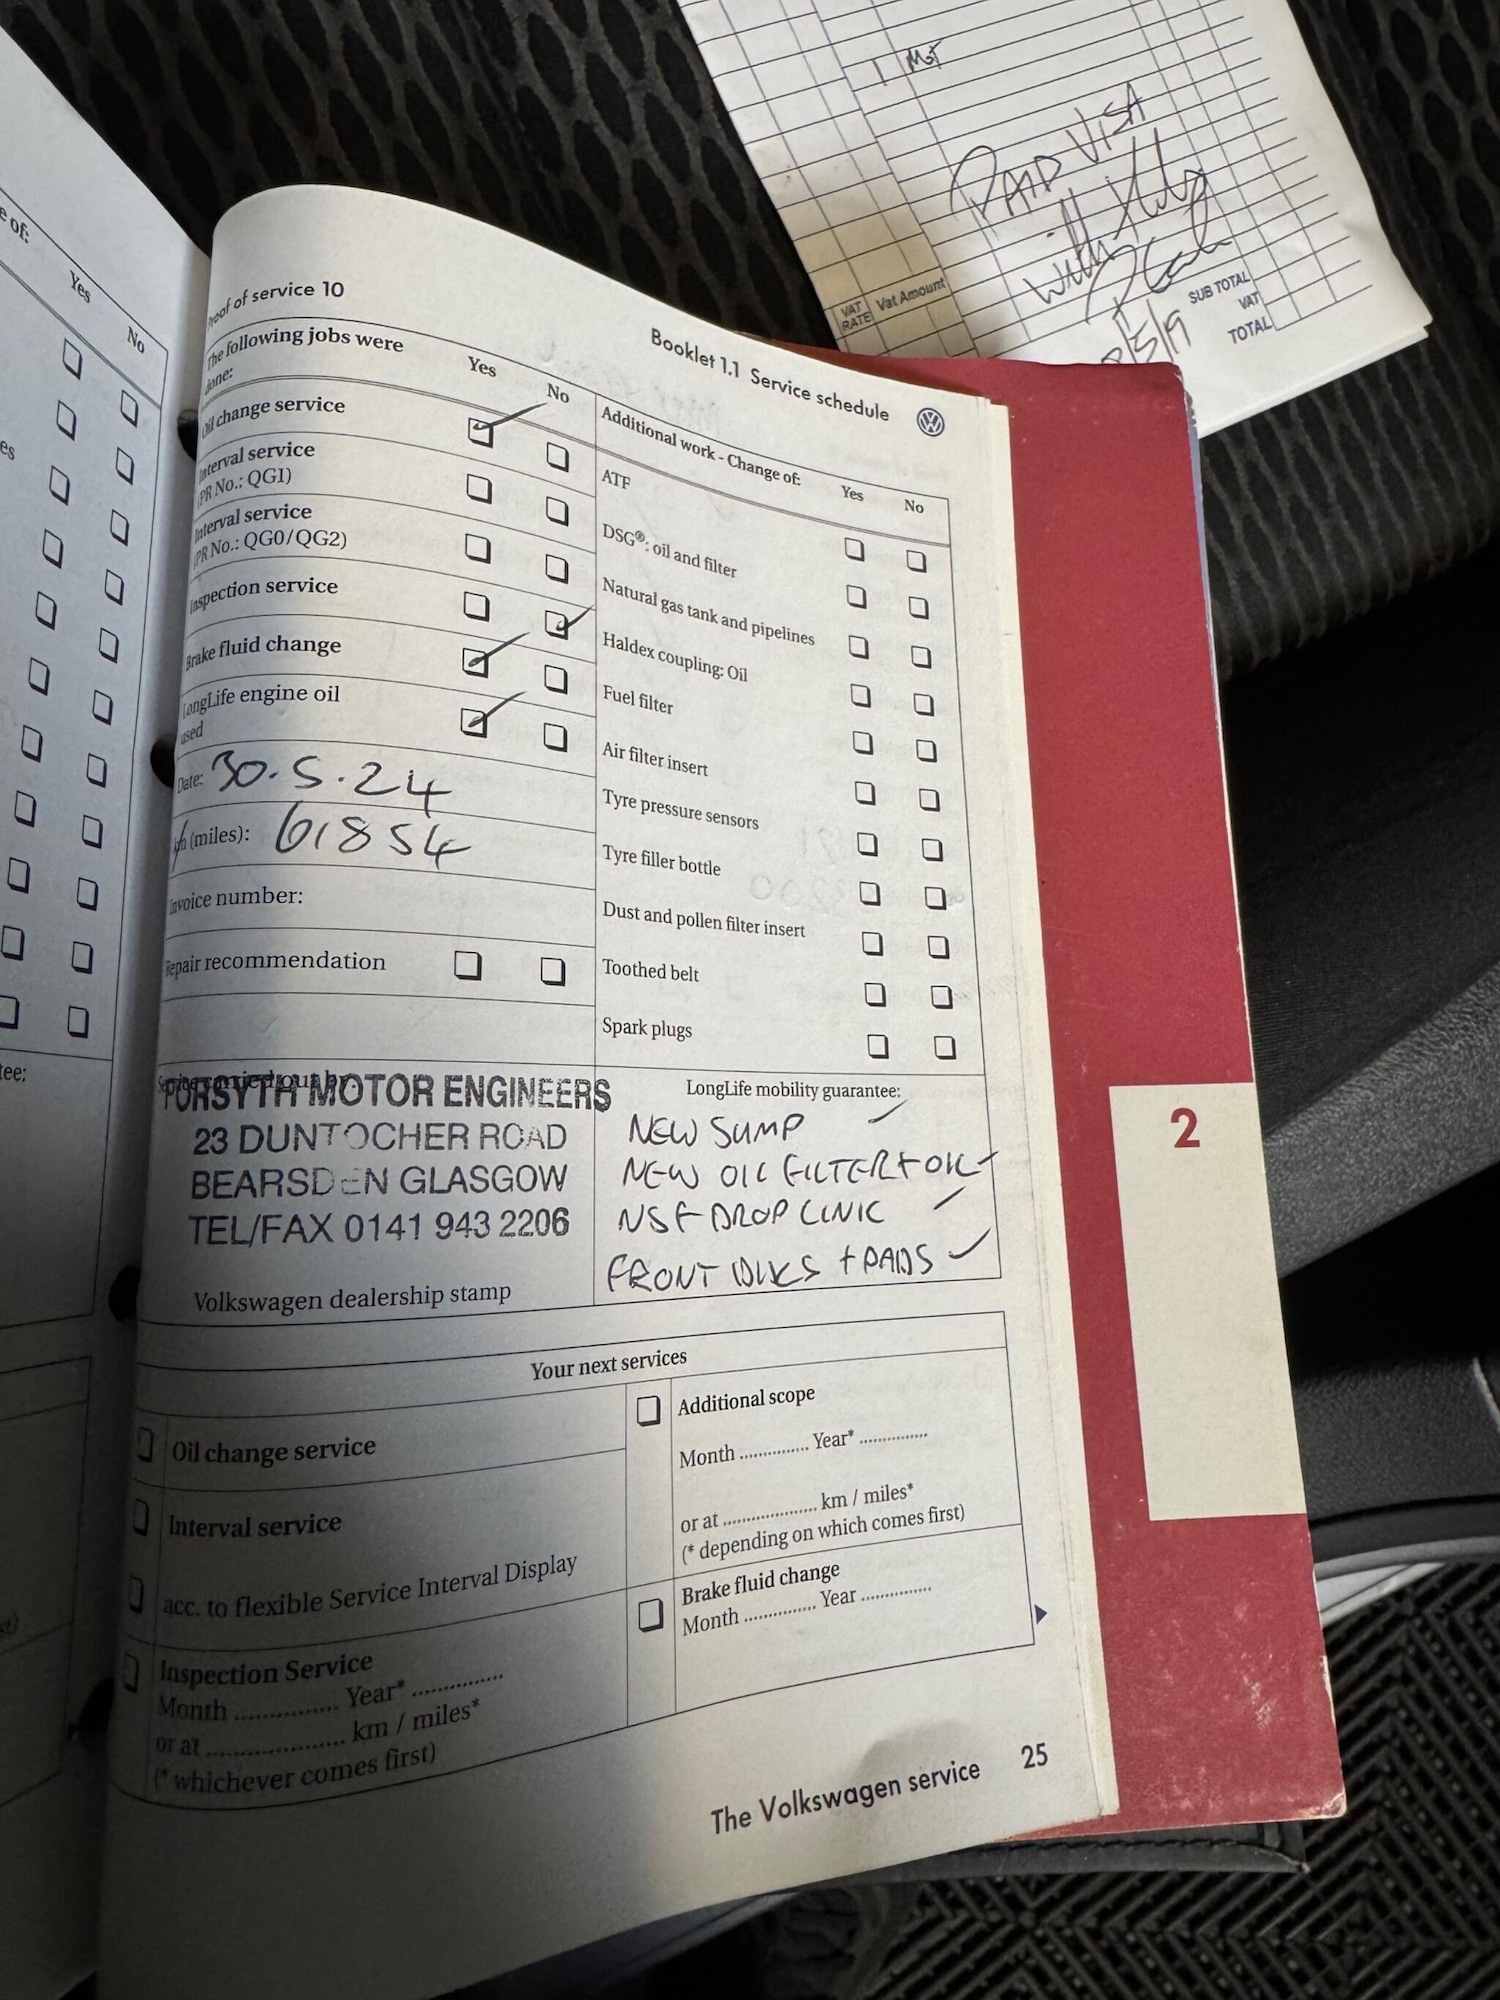 1 MOT
PAID VISA
with
VAT RATE
Vat Amount
SUB TOTAL
VAT
TOTAL
/5/19
e of:
Yes
No
es
tee:
Proof of service 10
Booklet 1.1 Service schedule
The following jobs were done:
Yes
No
Oil change service
Interval service
(PR No.: QG1)
Interval service
(PR No.: QG0/QG2)
Inspection service
Brake fluid change
LongLife engine oil
used
Date: 30.5.24
km (miles): 61854
Invoice number:
Repair recommendation
Additional work - Change of:
Yes
No
ATF
DSG®: oil and filter
Natural gas tank and pipelines
Haldex coupling: Oil
Fuel filter
Air filter insert
Tyre pressure sensors
Tyre filler bottle
Dust and pollen filter insert
Toothed belt
Spark plugs
Service carried out by:
FORSYTH MOTOR ENGINEERS
23 DUNTOCHER ROAD
BEARSDEN GLASGOW
TEL/FAX 0141 943 2206
Volkswagen dealership stamp
LongLife mobility guarantee:
NEW SUMP
NEW OIL FILTER + OIL
NSF DROP LINK
FRONT DISKS + PADS
Your next services
Oil change service
Interval service
acc. to flexible Service Interval Display
Inspection Service
Month ............... Year* ...............
or at .................... km / miles*
(* whichever comes first)
Additional scope
Month .............. Year* ..............
or at .................... km / miles*
(* depending on which comes first)
Brake fluid change
Month .............. Year ..............
The Volkswagen service 25
2